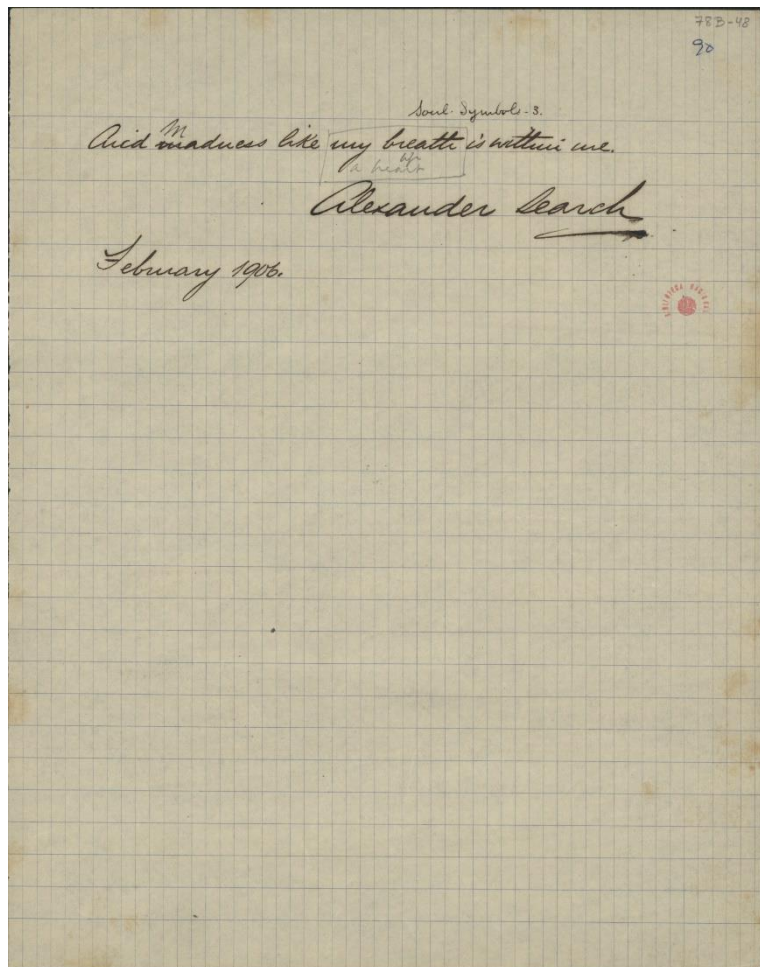 78B-48
90
Soul-Symbols-3.
M
And madness like my breath is within me.
a heart
Alexander Search
February 1906.
BIBLIOTECA NACIONAL